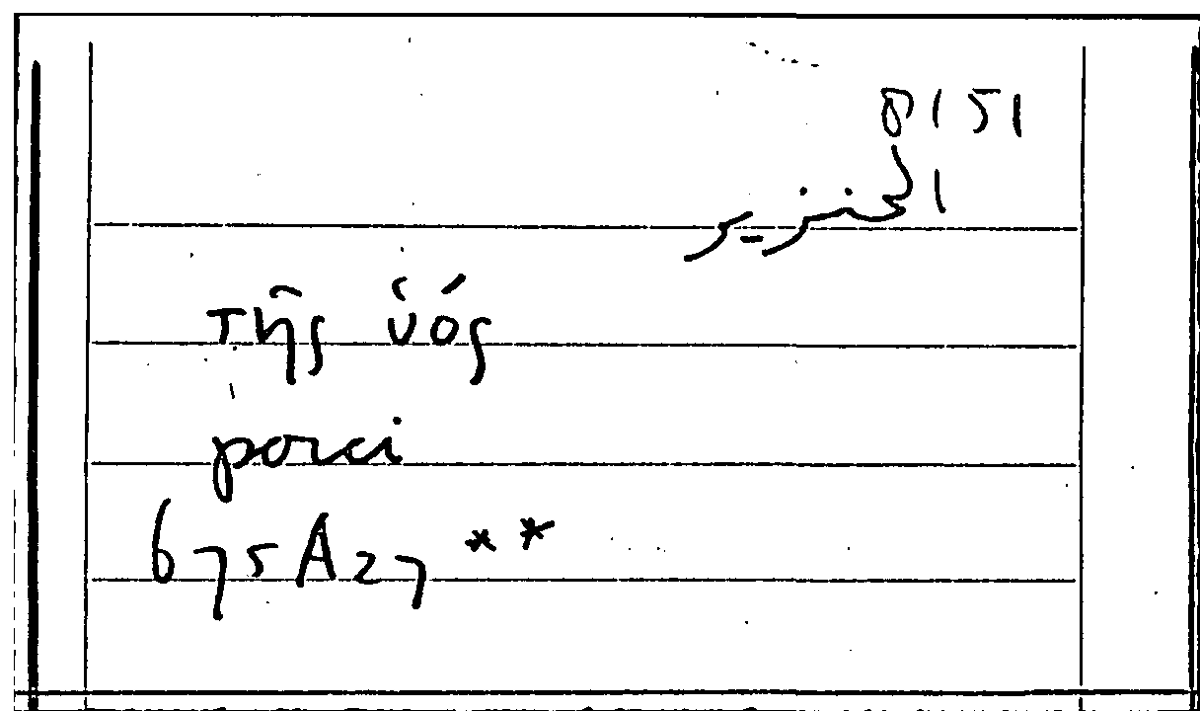 8151
الخنزير
τῆς ὑός
porci
675A27**